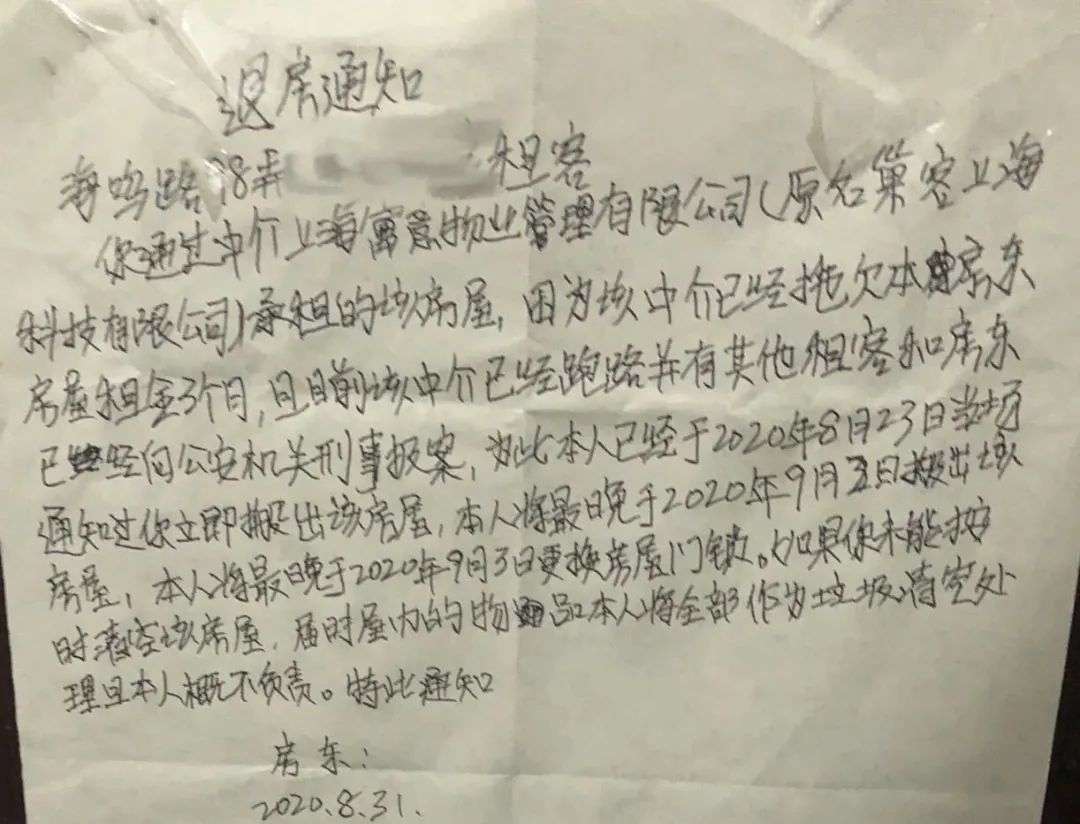 退房通知
海鸣路78弄 租客
你通过中介上海寓意物业管理有限公司(原名巢客上海
科技有限公司)承租的该房屋,因为该中介已经拖欠本房东
房屋租金3个月,且目前该中介已经跑路并有其他租客和房东
已经向公安机关刑事报案,为此本人已经于2020年8月23日当场
通知过你立即搬出该房屋,本人将最晚于2020年9月3日搬出该
房屋,本人将最晚于2020年9月3日更换房屋门锁。如果你未能按
时清空该房屋,届时屋内的物品本人将全部作为垃圾清空处
理且本人概不负责。特此通知
房东:
2020.8.31.